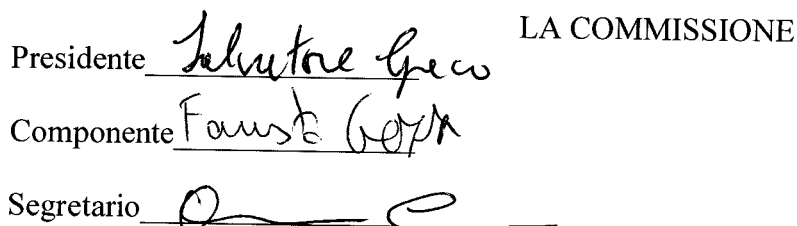 LA COMMISSIONE
Presidente Salvatore Greco
Componente Fausto
Segretario